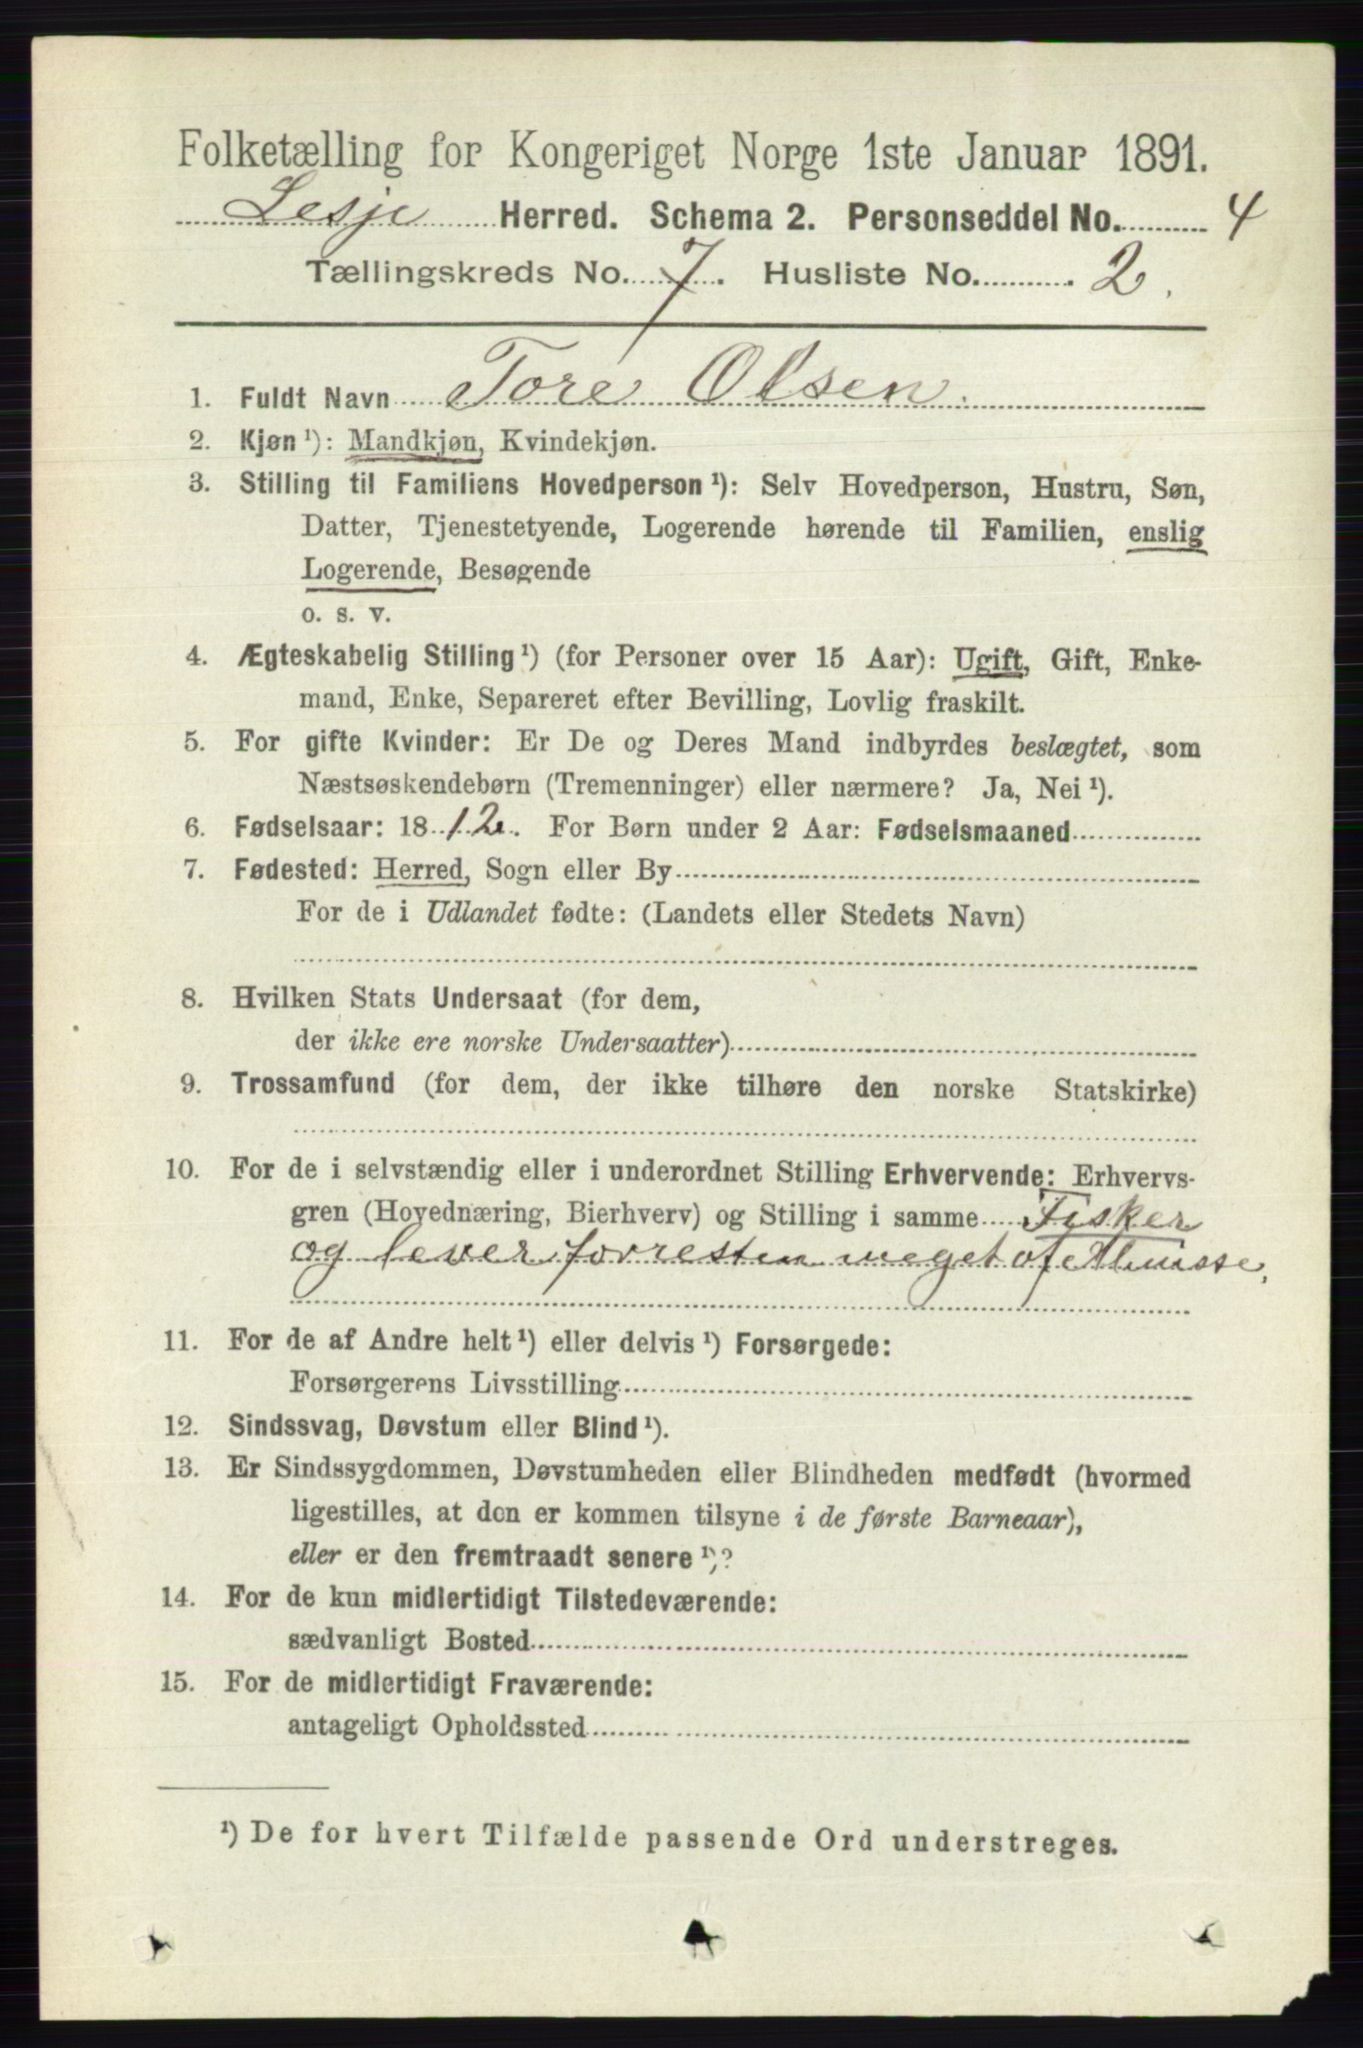 Folketælling for Kongeriget Norge 1ste Januar 1891.
Lesje Herred. Schema 2. Personseddel No. 4
Tællingskreds No. 7. Husliste No. 2.
1. Fuldt Navn Tore Olsen.
2. Kjøn ¹): Mandkjøn, Kvindekjøn.
3. Stilling til Familiens Hovedperson ¹): Selv Hovedperson, Hustru, Søn,
Datter, Tjenestetyende, Logerende hørende til Familien, enslig
Logerende, Besøgende
o. s. v.
4. Ægteskabelig Stilling ¹) (for Personer over 15 Aar): Ugift, Gift, Enke-
mand, Enke, Separeret efter Bevilling, Lovlig fraskilt.
5. For gifte Kvinder: Er De og Deres Mand indbyrdes beslægtet, som
Næstsøskendebørn (Tremenninger) eller nærmere? Ja, Nei ¹).
6. Fødselsaar: 1812. For Børn under 2 Aar: Fødselsmaaned
7. Fødested: Herred, Sogn eller By
For de i Udlandet fødte: (Landets eller Stedets Navn)
8. Hvilken Stats Undersaat (for dem,
der ikke ere norske Undersaatter)
9. Trossamfund (for dem, der ikke tilhøre den norske Statskirke)
10. For de i selvstændig eller i underordnet Stilling Erhvervende: Erhvervs-
gren (Hovednæring, Bierhverv) og Stilling i samme Fisker
og lever forresten meget af Almisse.
11. For de af Andre helt ¹) eller delvis ¹) Forsørgede:
Forsørgerens Livsstilling
12. Sindssvag, Døvstum eller Blind ¹).
13. Er Sindssygdommen, Døvstumheden eller Blindheden medfødt (hvormed
ligestilles, at den er kommen tilsyne i de første Barneaar),
eller er den fremtraadt senere ¹)?
14. For de kun midlertidigt Tilstedeværende:
sædvanligt Bosted
15. For de midlertidigt Fraværende:
antageligt Opholdssted
¹) De for hvert Tilfælde passende Ord understreges.